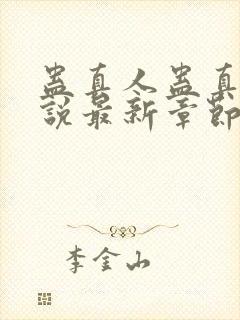 蛊真人蛊真
説最新章節
李金山